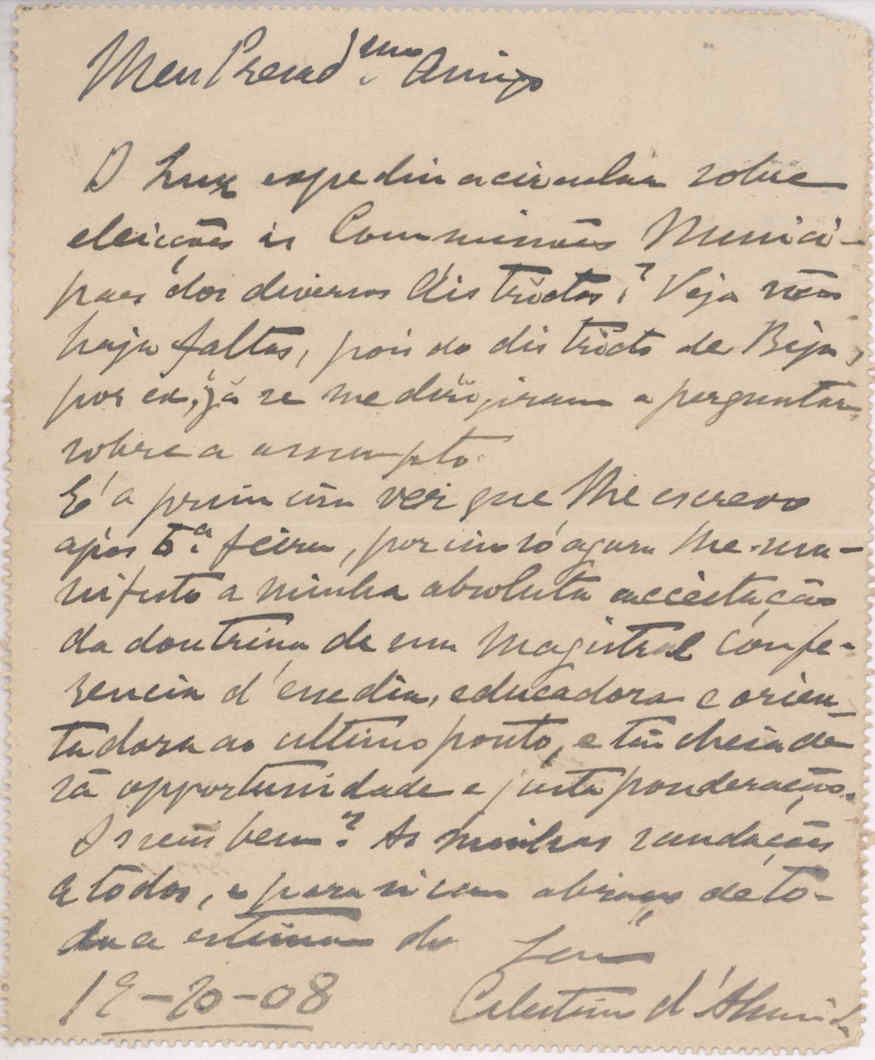 Meu Presad.mo Amigo
O Luz expediu a circular sobre
eleições ás Commissões Munici-
paes dos diversos districtos? Veja não
haja faltas, pois do districto de Beja,
por ex., já se me dirigiram a perguntar
sobre o assumpto.
É a primeira vez que lhe escrevo
após 5.ª feira, por isso só agora lhe ma-
nifesto a minha absoluta acceitação
da doutrina da sua magistral confe-
rencia d'esse dia, educadora e orien-
tadora ao ultimo ponto, e tão cheia de
sã opportunidade e justa ponderação.
Os seus bem? As minhas saudações
a todos, e para si um abraço de to-
da a estima do Seu
-10-08 Celestino d'Almeida